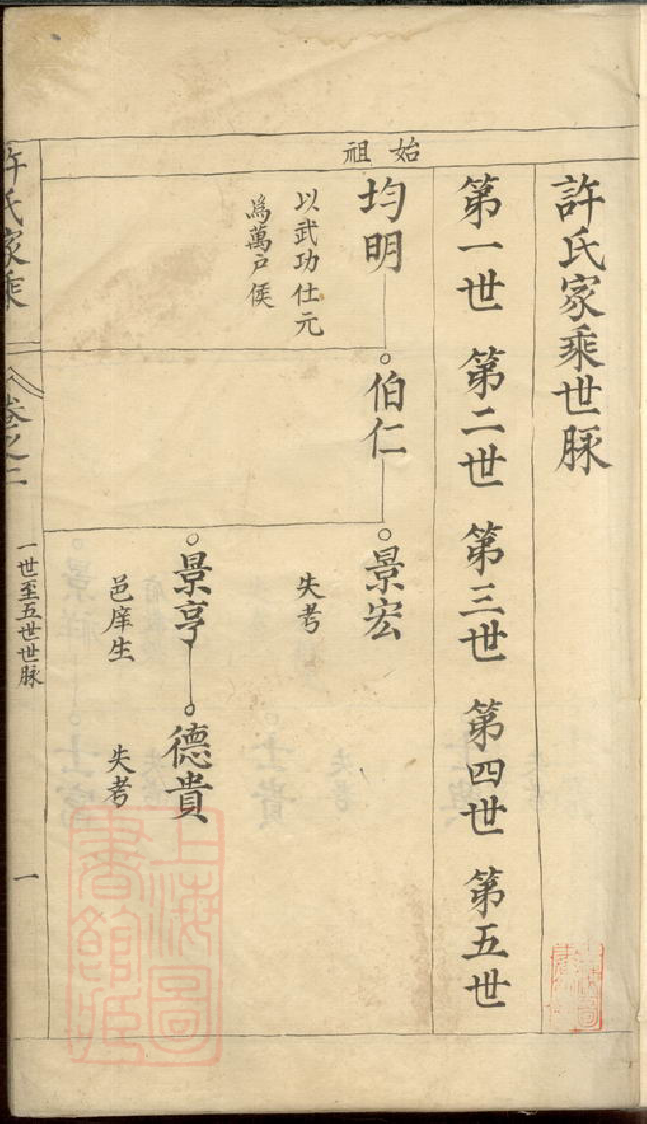 許氏家乘世脉
第一世 第二世 第三世 第四世 第五世
始祖
均明
以武功仕元
為萬户侯
伯仁
景宏
失考
景亨
邑庠生
德貴
失考
許氏家乘
卷之二
一世至五世世脉
一
上海圖書館藏